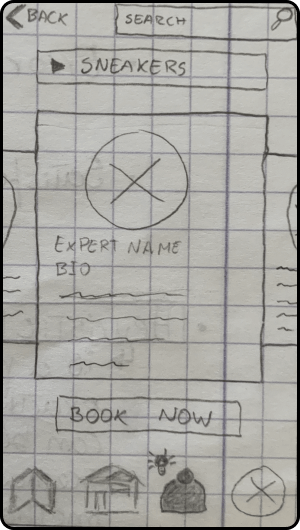 BACK
SEARCH
SNEAKERS
EXPERT NAME
BIO
BOOK NOW